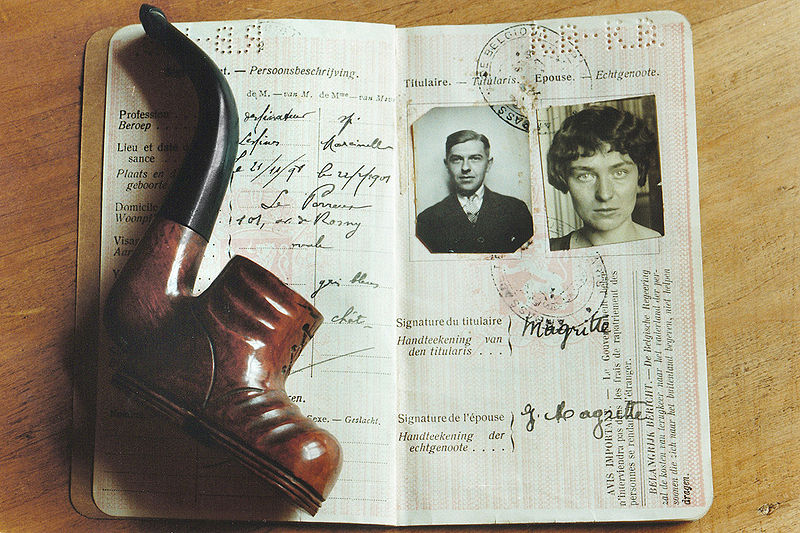 t. — Persoonsbeschrijving.
de M. — van M. de Mme — van Mevr
Profession
Beroep
Lieu et date de
sance
Plaats en d
geboorte
Domicile
Woonpl
Visa
Aan
V
Lessines Marcinelle
le 21/11/98 le 22/2/1901
Le Perreux
101, av. de Rosny
ovale
gris bleus
chât.
en.
Sexe. — Geslacht.
Titulaire. — Titularis. Epouse. — Echtgenoote.
Signature du titulaire
Handteekening van
den titularis . . . .
Magritte
Signature de l'épouse
Handteekening der
echtgenoote . . . . .
G. Magritte
AVIS IMPORTA — Le Gouvernement belge
n'interviendra pas dans les frais de rapatriement des
personnes se rendant l'étranger.
BELANGRIJK BERICHT. — De Belgische Regeering
zal de kosten van terugkeer naar het vaderland der per-
soonen die zich naar het buitenland begeven, niet helpen
dragen.